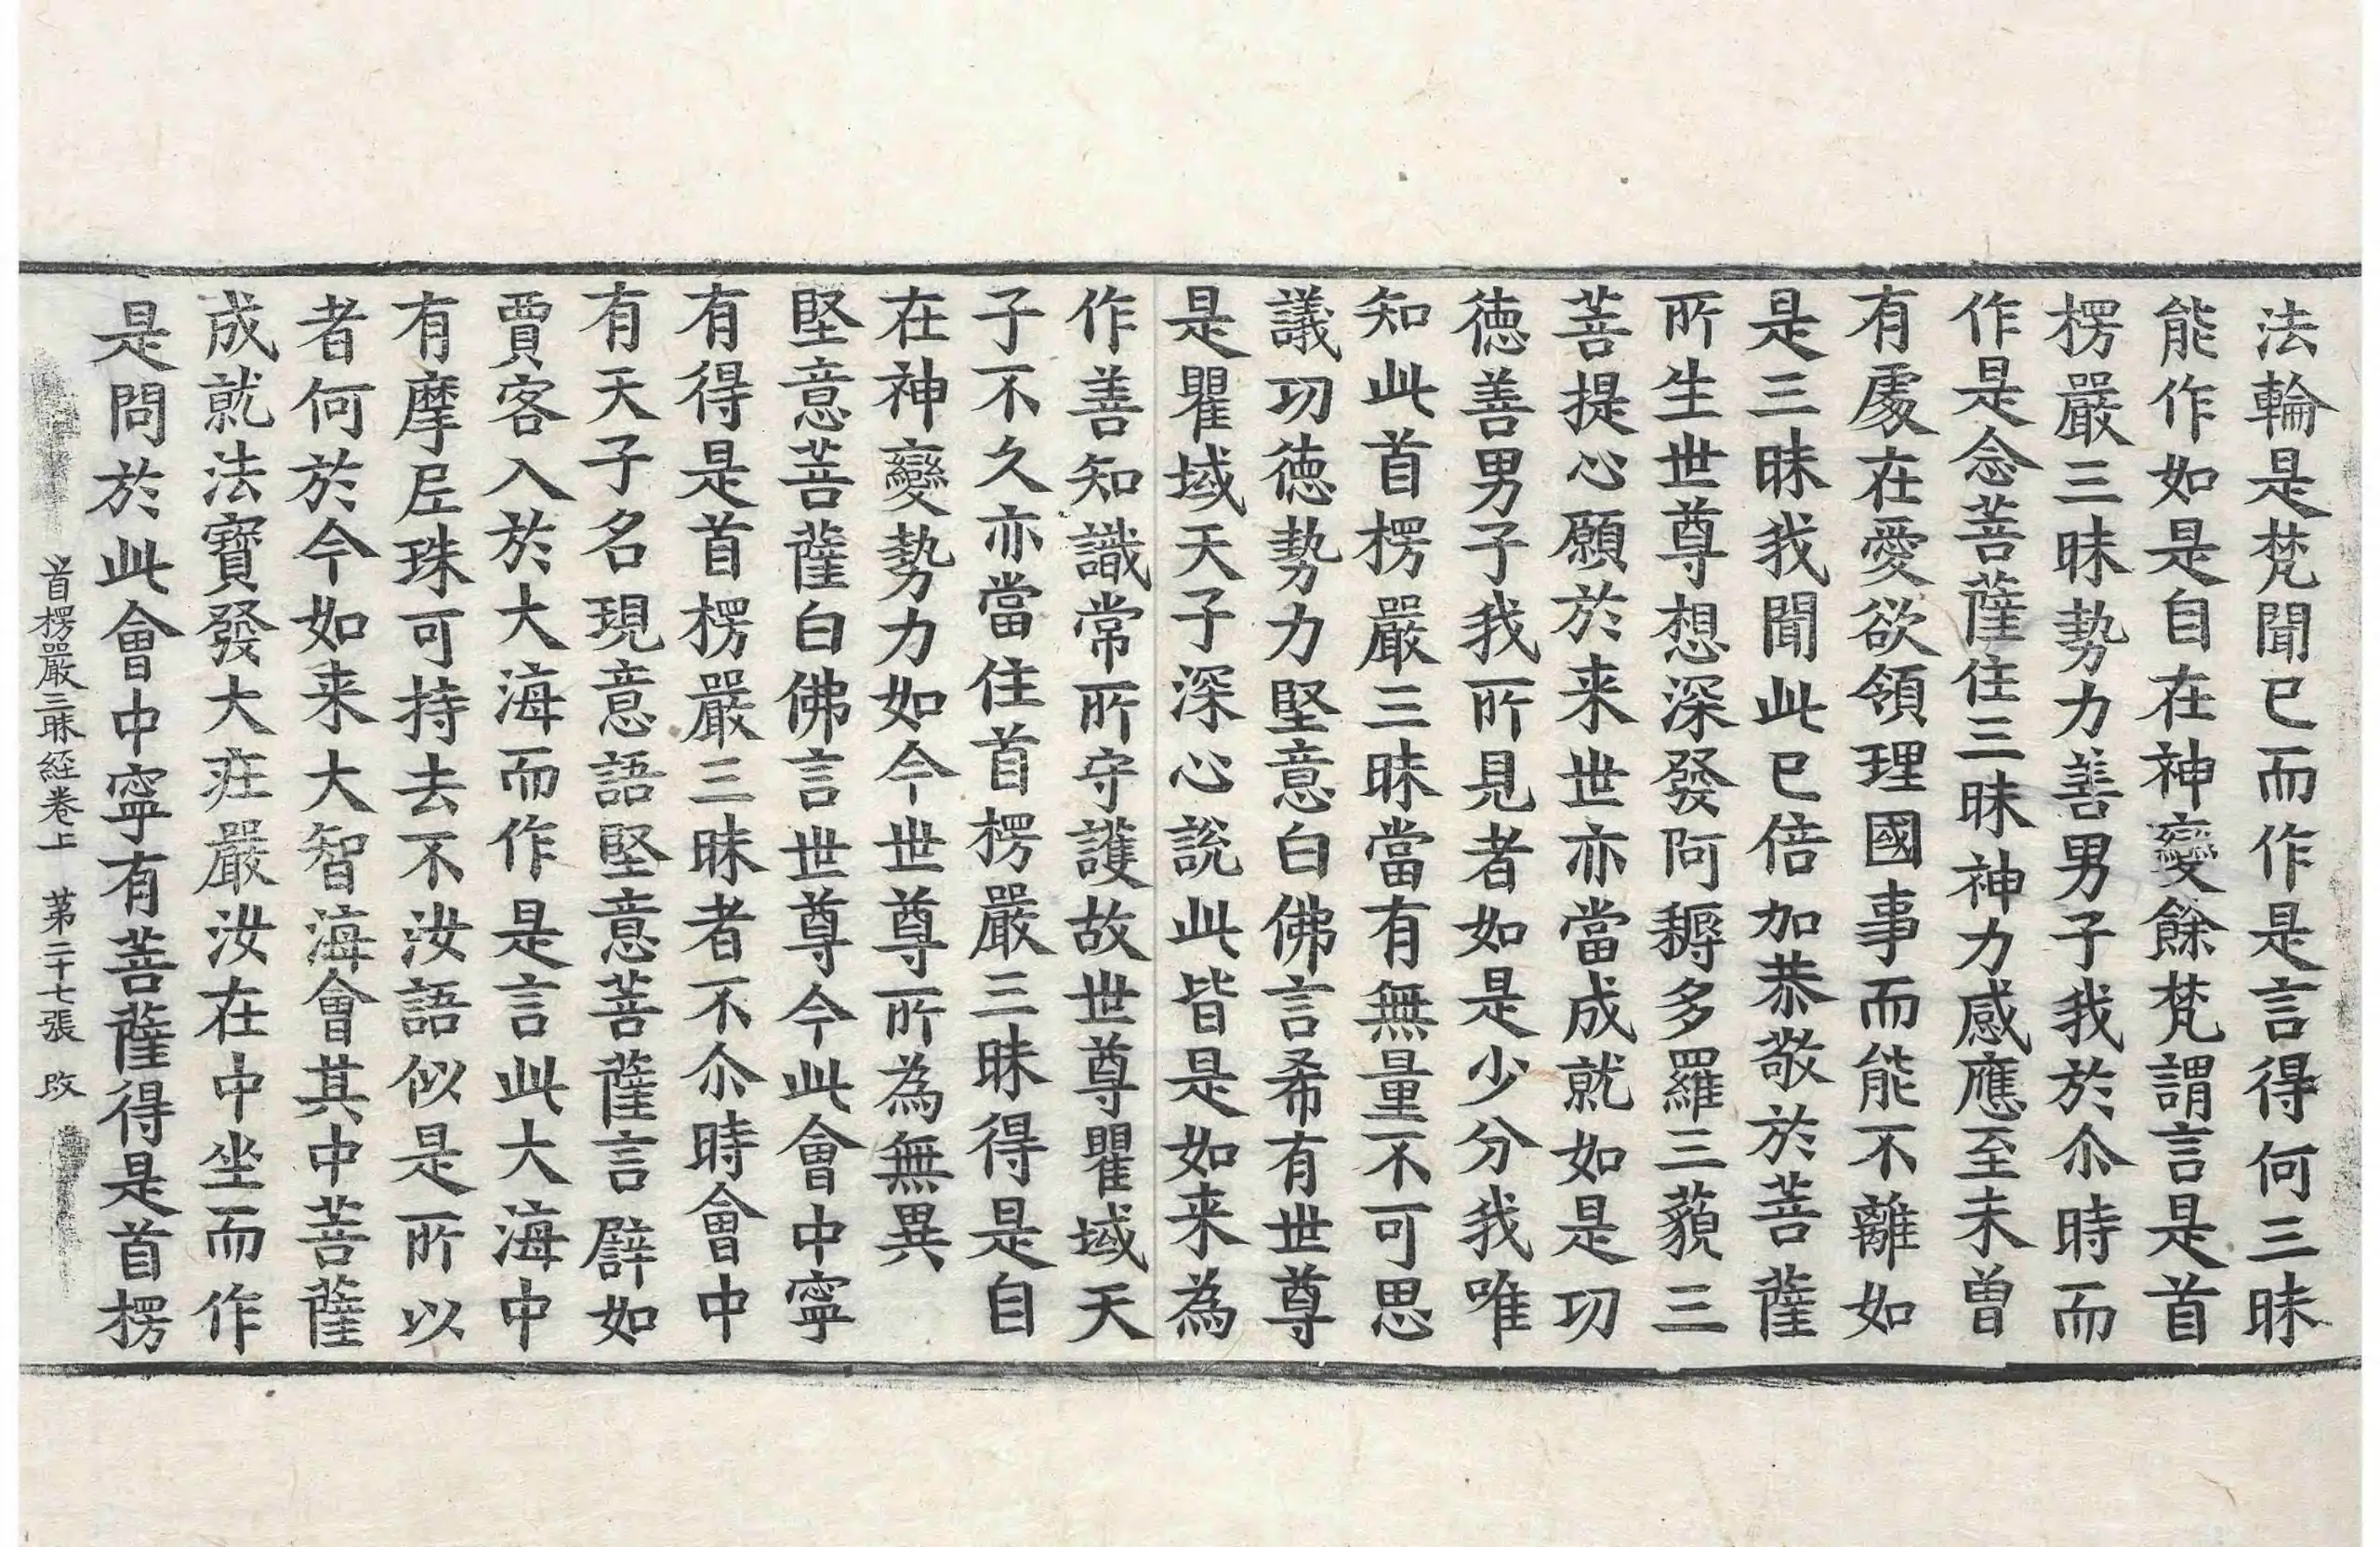 法輪是梵聞已而作是言得何三昧
能作如是自在神變餘梵謂言是首
楞嚴三昧勢力善男子我於尒時而
作是念菩薩住三昧神力感應至未曾
有處在愛欲領理國事而能不離如
是三昧我聞此已倍加恭敬於菩薩
所生世尊想深發阿耨多羅三藐三
菩提心願於来世亦當成就如是功
德善男子我所見者如是少分我唯
知此首楞嚴三昧當有無量不可思
議功德勢力堅意白佛言希有世尊
是瞿域天子深心說此皆是如来為
作善知識常所守護故世尊瞿域天
子不久亦當住首楞嚴三昧得是自
在神變勢力如今世尊所為無異
堅意菩薩白佛言世尊今此會中寧
有得是首楞嚴三昧者不尒時會中
有天子名現意語堅意菩薩言譬如
賈客入於大海而作是言此大海中
有摩𡰱珠可持去不汝語似是所以
者何於今如来大智海會其中菩薩
成就法寶發大疰嚴汝在中坐而作
是問於此會中寧有菩薩得是首楞
首楞嚴三昧経卷上　第二十七張　改